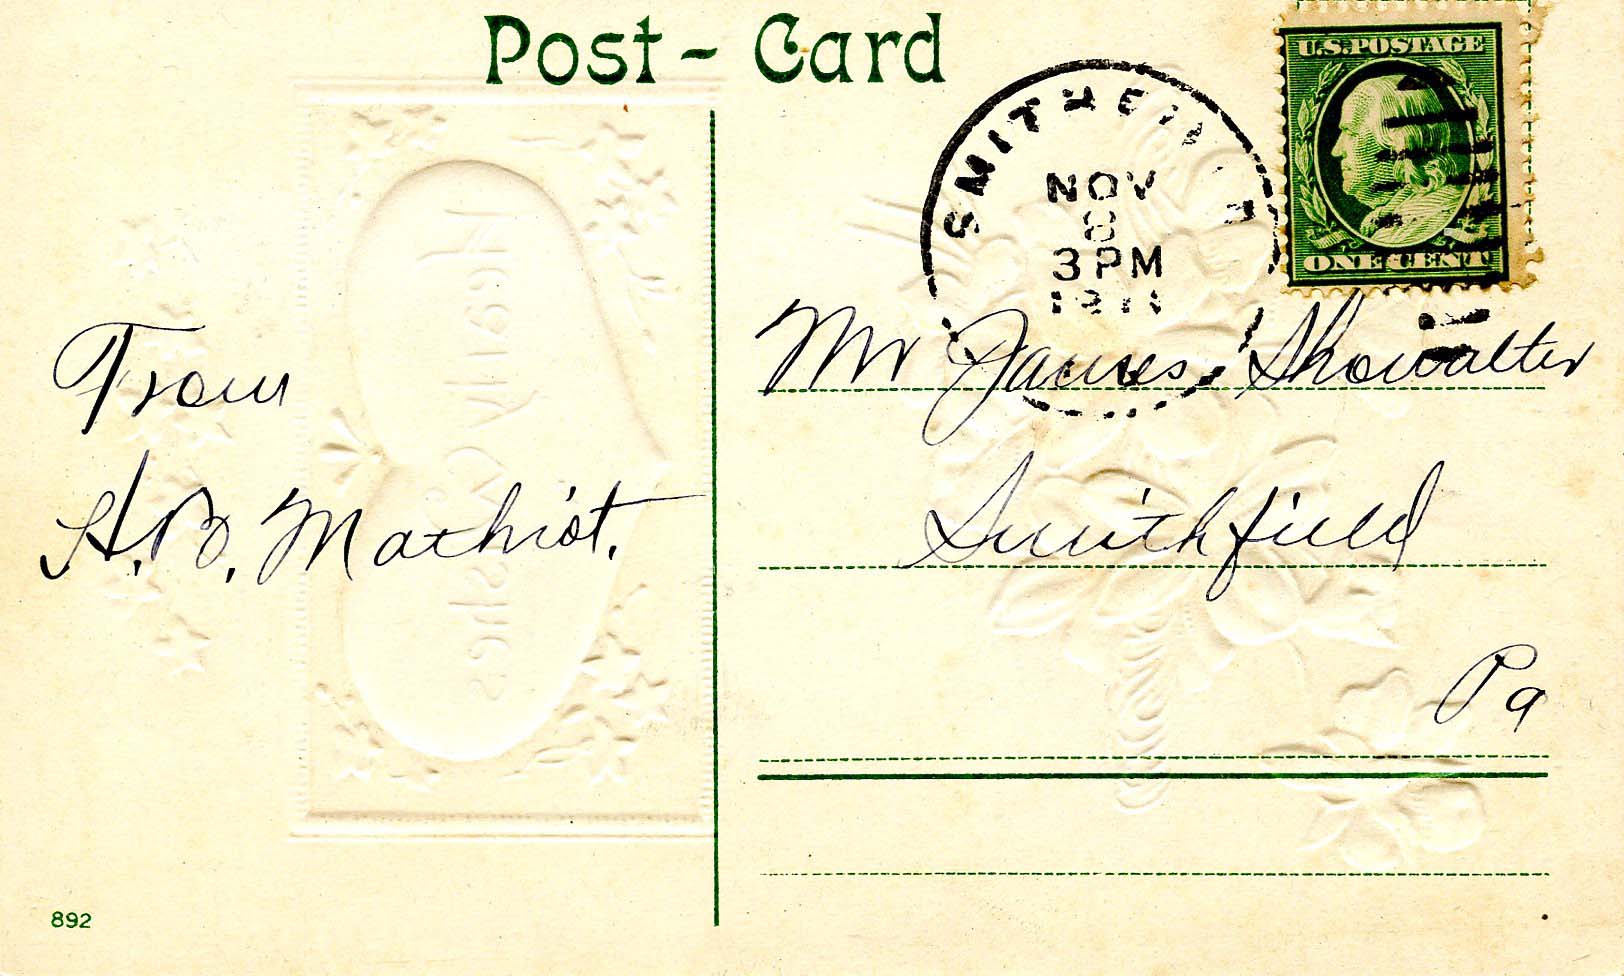 Post - Card
NOV
8
3 PM
1911
U.S. POSTAGE
ONE CENT
From
H. B. Mathiot.
Mr James Showalter
Smithfield
Pa
892